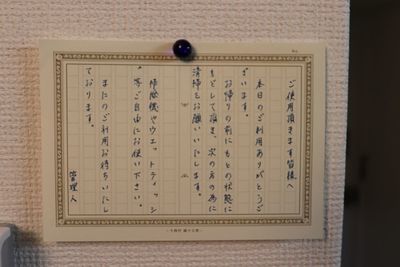 ご使用頂きます皆様へ
本日のご利用ありがとうご
ざいます。
お帰りの前にもとの状態に
もどして頂き、次の方の為に
清掃をお願いいたします。
掃除機やウエットティッシュ
等ご自由にお使い下さい。
またのご利用お待ちいたし
ております。
管理人